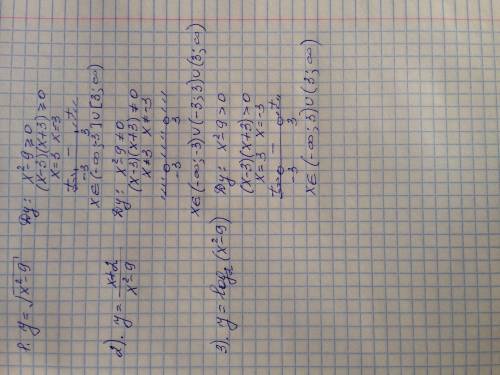 1. y = √x²-9
Dy: x²-9 ≥ 0
(x-3)(x+3) ≥ 0
x = 3 x = -3
+ - +
-3 3
x ∈ (-∞; -3] ∪ [3; ∞)
2). y = x+2 / x²-9
Dy: x²-9 ≠ 0
(x-3)(x+3) ≠ 0
x ≠ 3 x ≠ -3
-3 3
x ∈ (-∞; -3) ∪ (-3; 3) ∪ (3; ∞)
3). y = log₂ (x²-9)
Dy: x²-9 > 0
(x-3)(x+3) > 0
x = 3 x = -3
+ - +
-3 3
x ∈ (-∞; 3) ∪ (3; ∞)